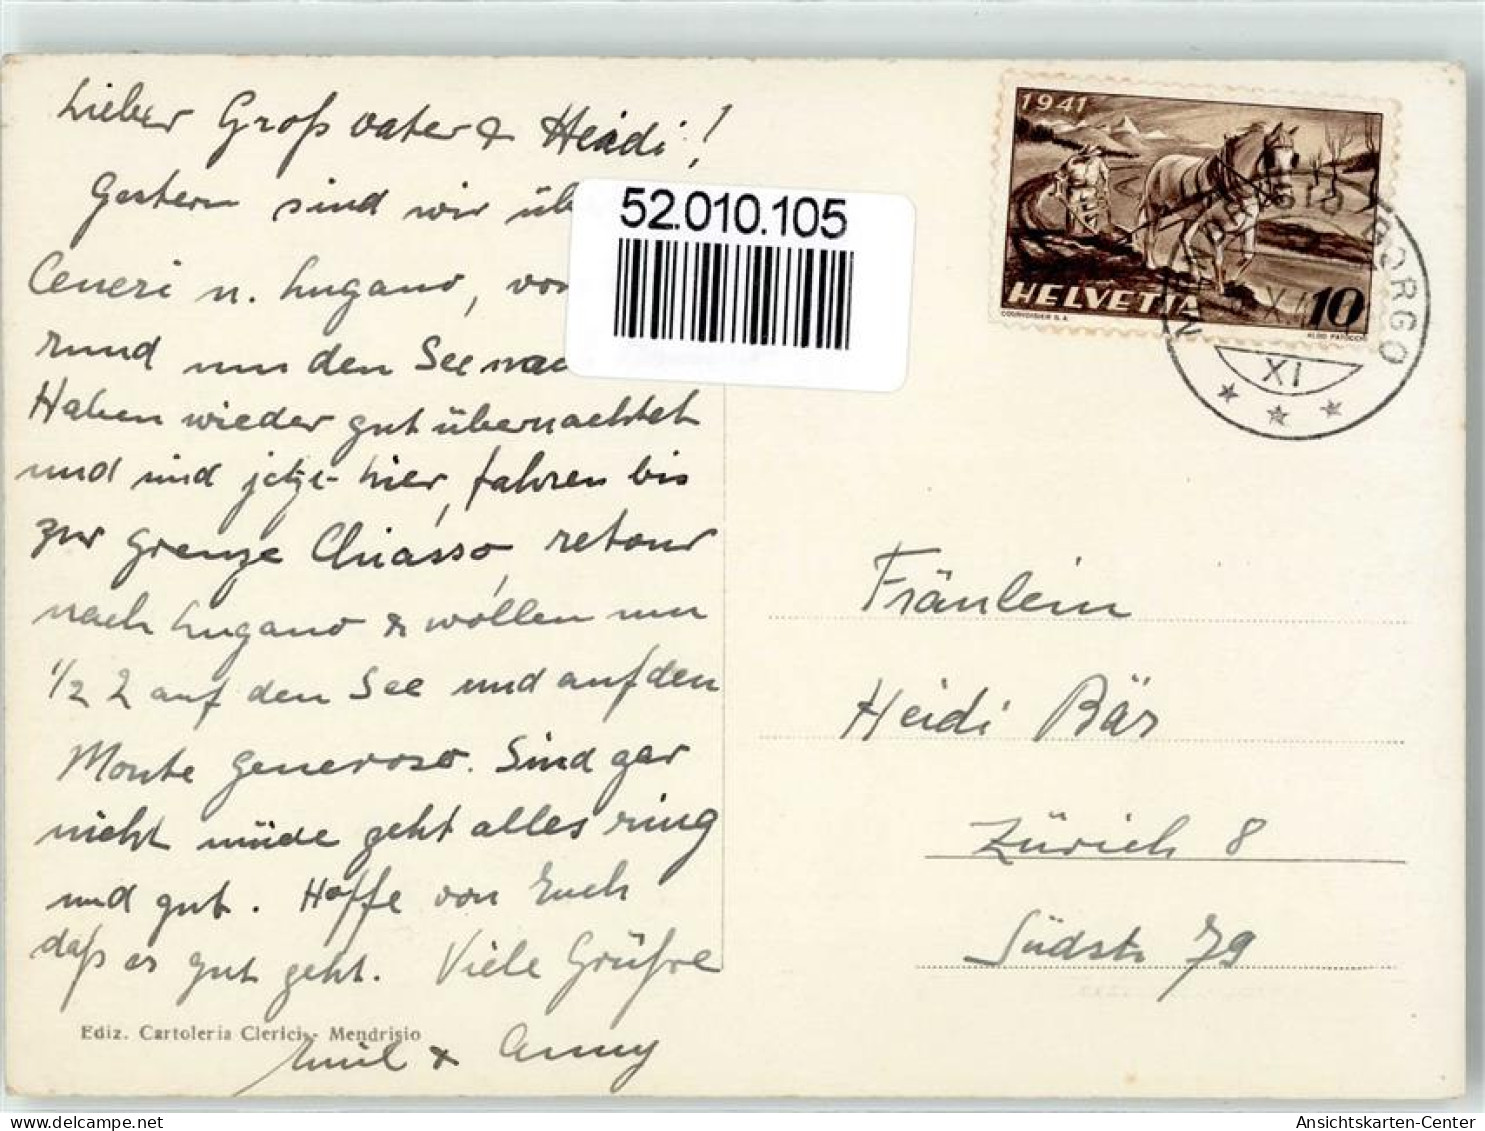 Lieber Großvater & Heidi!
Gestern sind wir
Ceneri n. Lugano,
rund um den See
Haben wieder gut übernachtet
und sind jetzt hier, fahren bis
zur Grenze Chiasso, retour
nach Lugano & wollen nun
1/2 2 auf den See und auf den
Monte Generoso. Sind gar
nicht müde geht alles ring
und gut. Hoffe von Euch
daß es gut geht. Viele Grüße
Emil & Anny
Ediz. Cartoleria Clerici - Mendrisio
52.010.105
1941
HELVETIA 10
COURVOISIER S.A.
ALDO PATOCCHI
MENDRISIO BORGO
XI
Fräulein
Heidi Bär
Zürich 8
Südstr 79
Ansichtskarten-Center